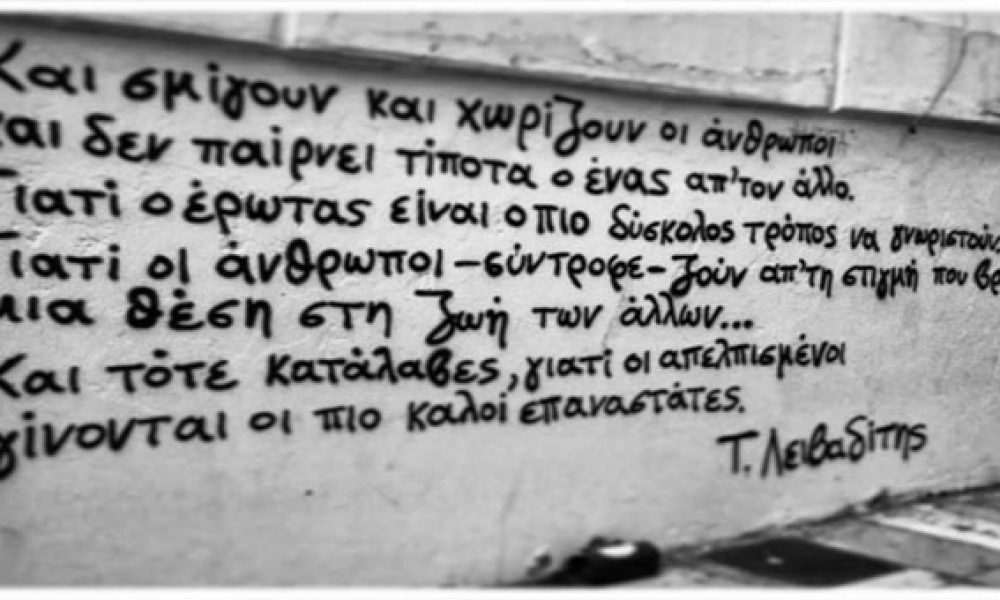 Και σμίγουν και χωρίζουν οι άνθρωποι
και δεν παίρνει τίποτα ο ένας απ'τον άλλο.
Γιατί ο έρωτας είναι ο πιο δύσκολος τρόπος να γνωριστούν
Γιατί οι άνθρωποι-σύντροφε-ζούν απ'τη στιγμή που
μια θέση στη ζωή των άλλων...
Και τότε κατάλαβες, γιατί οι απελπισμένοι
γίνονται οι πιο καλοί επαναστάτες.
Τ. Λειβαδίτης